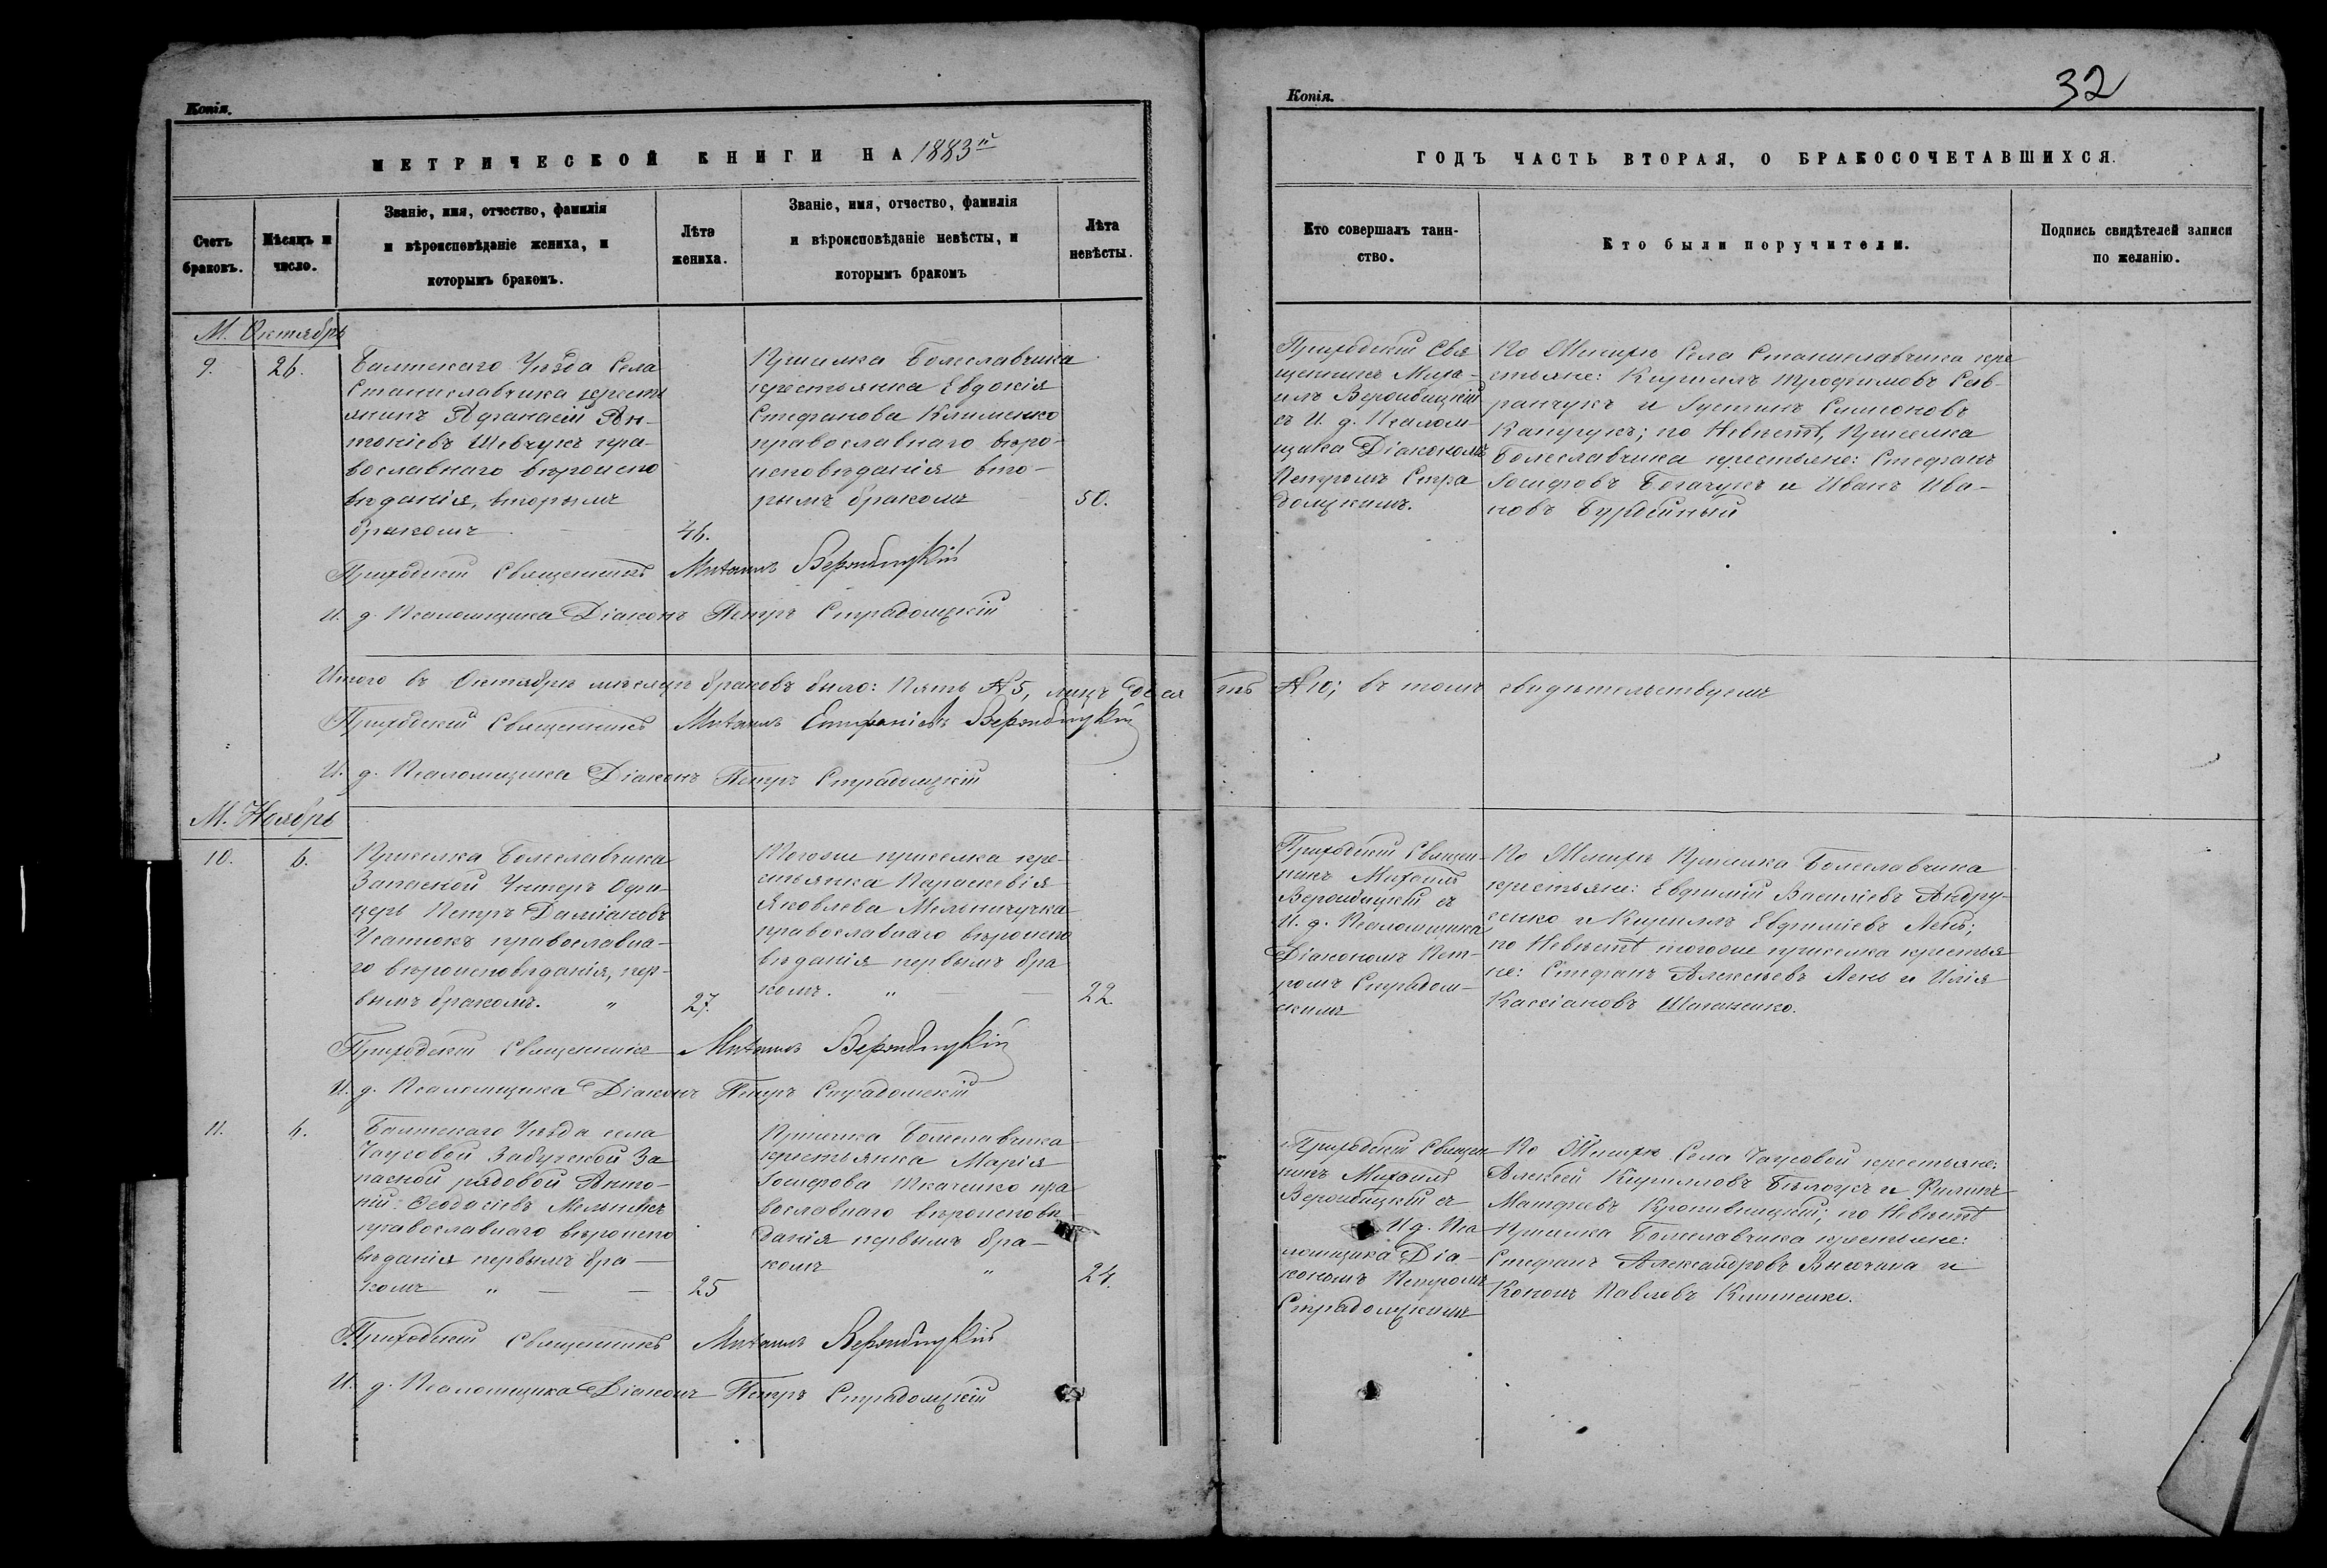 Копія.
МЕТРИЧЕСКОЙ КНИГИ НА 1883й
Счетъ
браковъ.
Мѣсяцъ и
число.
Званіе, имя, отчество, фамилія
и вѣроисповѣданіе жениха, и
которымъ бракомъ.
Лѣта
жениха.
Званіе, имя, отчество, фамилія
и вѣроисповѣданіе невѣсты, и
которымъ бракомъ
Лѣта
невѣсты.
М. Октябрь
9.
26.
Балтскаго Уѣзда Села
Станиславчика крестья
янинъ Афанасій Ан-
тоніевъ Шевчукъ пра-
вославнаго вѣроиспо
вѣданія, вторымъ
бракомъ
46.
Приселка Болеславчика
крестьянка Евдокія
Стефанова Клименко
православнаго вѣро-
исповѣданія вто-
рымъ бракомъ
50.
Приходскій Священникъ Михаилъ Вербицкій
И. д. Псаломщика Діаконъ Петръ Страдомцкій
Итого въ Октябрѣ мѣсяцѣ браковъ было: Пять №5, лицъ деся
Приходскій Священникъ Михаилъ Епифаніевъ
И. д. Псаломщика Діаконъ Петръ Страдомцкій
М. Ноябрь
10.
6.
Приселка Болеславчика
Запасной Унтеръ Офи-
церъ Петръ Даміановъ
Усатюкъ православна-
го вѣроисповѣданія, пер-
вымъ бракомъ. "
27.
Тогоже приселка кре-
стьянка Параскевія
Яковлева Мельничучка
православнаго вѣроиспо
вѣданія первымъ бра
комъ. "
22.
Приходскій Священникъ Михаилъ
И. д. Псаломщика Діаконъ Петръ Страдомскій
11.
6.
Балтскаго Уѣзда села
Чаусовой Забугской За
пасной рядовой Анто-
ній Ѳеодосіевъ Мельникъ
православнаго вѣроиспо
вѣданія первымъ бра-
комъ "
25
Приселка Болеславчика
крестьянка Марія
Іосифова Ткаченко пра
вославнаго вѣроисповѣ
данія первымъ бра-
комъ "
24.
Приходскій Священникъ Михаилъ
И. д. Псаломщика Діаконъ Петръ Страдомцкій
Копія.
32
ГОДЪ ЧАСТЬ ВТОРАЯ, О БРАКОСОЧЕТАВШИХСЯ.
Кто совершалъ таин-
ство.
Кто были поручители.
Подпись свидѣтелей записи
по желанію.
Приходскій Свя
щенникъ Миха-
илъ
съ И. д. Псалом-
щика Діакономъ
Петромъ Стра
домцкимъ.
По Женихѣ Села Станиславчика кре
стьяне: Кириллъ Трофимовъ Сав-
ранчукъ и Іустинъ Симеоновъ
по Невѣстѣ, Приселка
Болеславчика крестьяне: Стефанъ
Іосифовъ Богачукъ и Иванъ Ива-
новъ
ть №10; въ томъ свидѣтельствуемъ
Приходскій Священ-
никъ Михаилъ
съ
И. д. Псаломщика
Діакономъ Пет-
ромъ Страдом-
скимъ
По Женихѣ Приселка Болеславчика
крестьяне: Евфимій Василіевъ Андру-
сенко и Кириллъ Евфиміевъ Лень;
по Невѣстѣ тогоже приселка крестья
не: Стефанъ Алексѣевъ Лень и Илія
Кассіановъ
Приходскій Священ
никъ Михаилъ
съ
И д. Пса
ломщика Діа-
кономъ Петромъ
Страдомцкимъ
По Женихѣ Села Чаусовой крестьяне:
Алексѣй Кирилловъ Бѣлоусъ и Филипъ
Матфеевъ Кропивницкій; по Невѣстѣ
Приселка Болеславчика крестьяне:
Стефанъ Александровъ Височана и
Кононъ Павловъ Клименко.